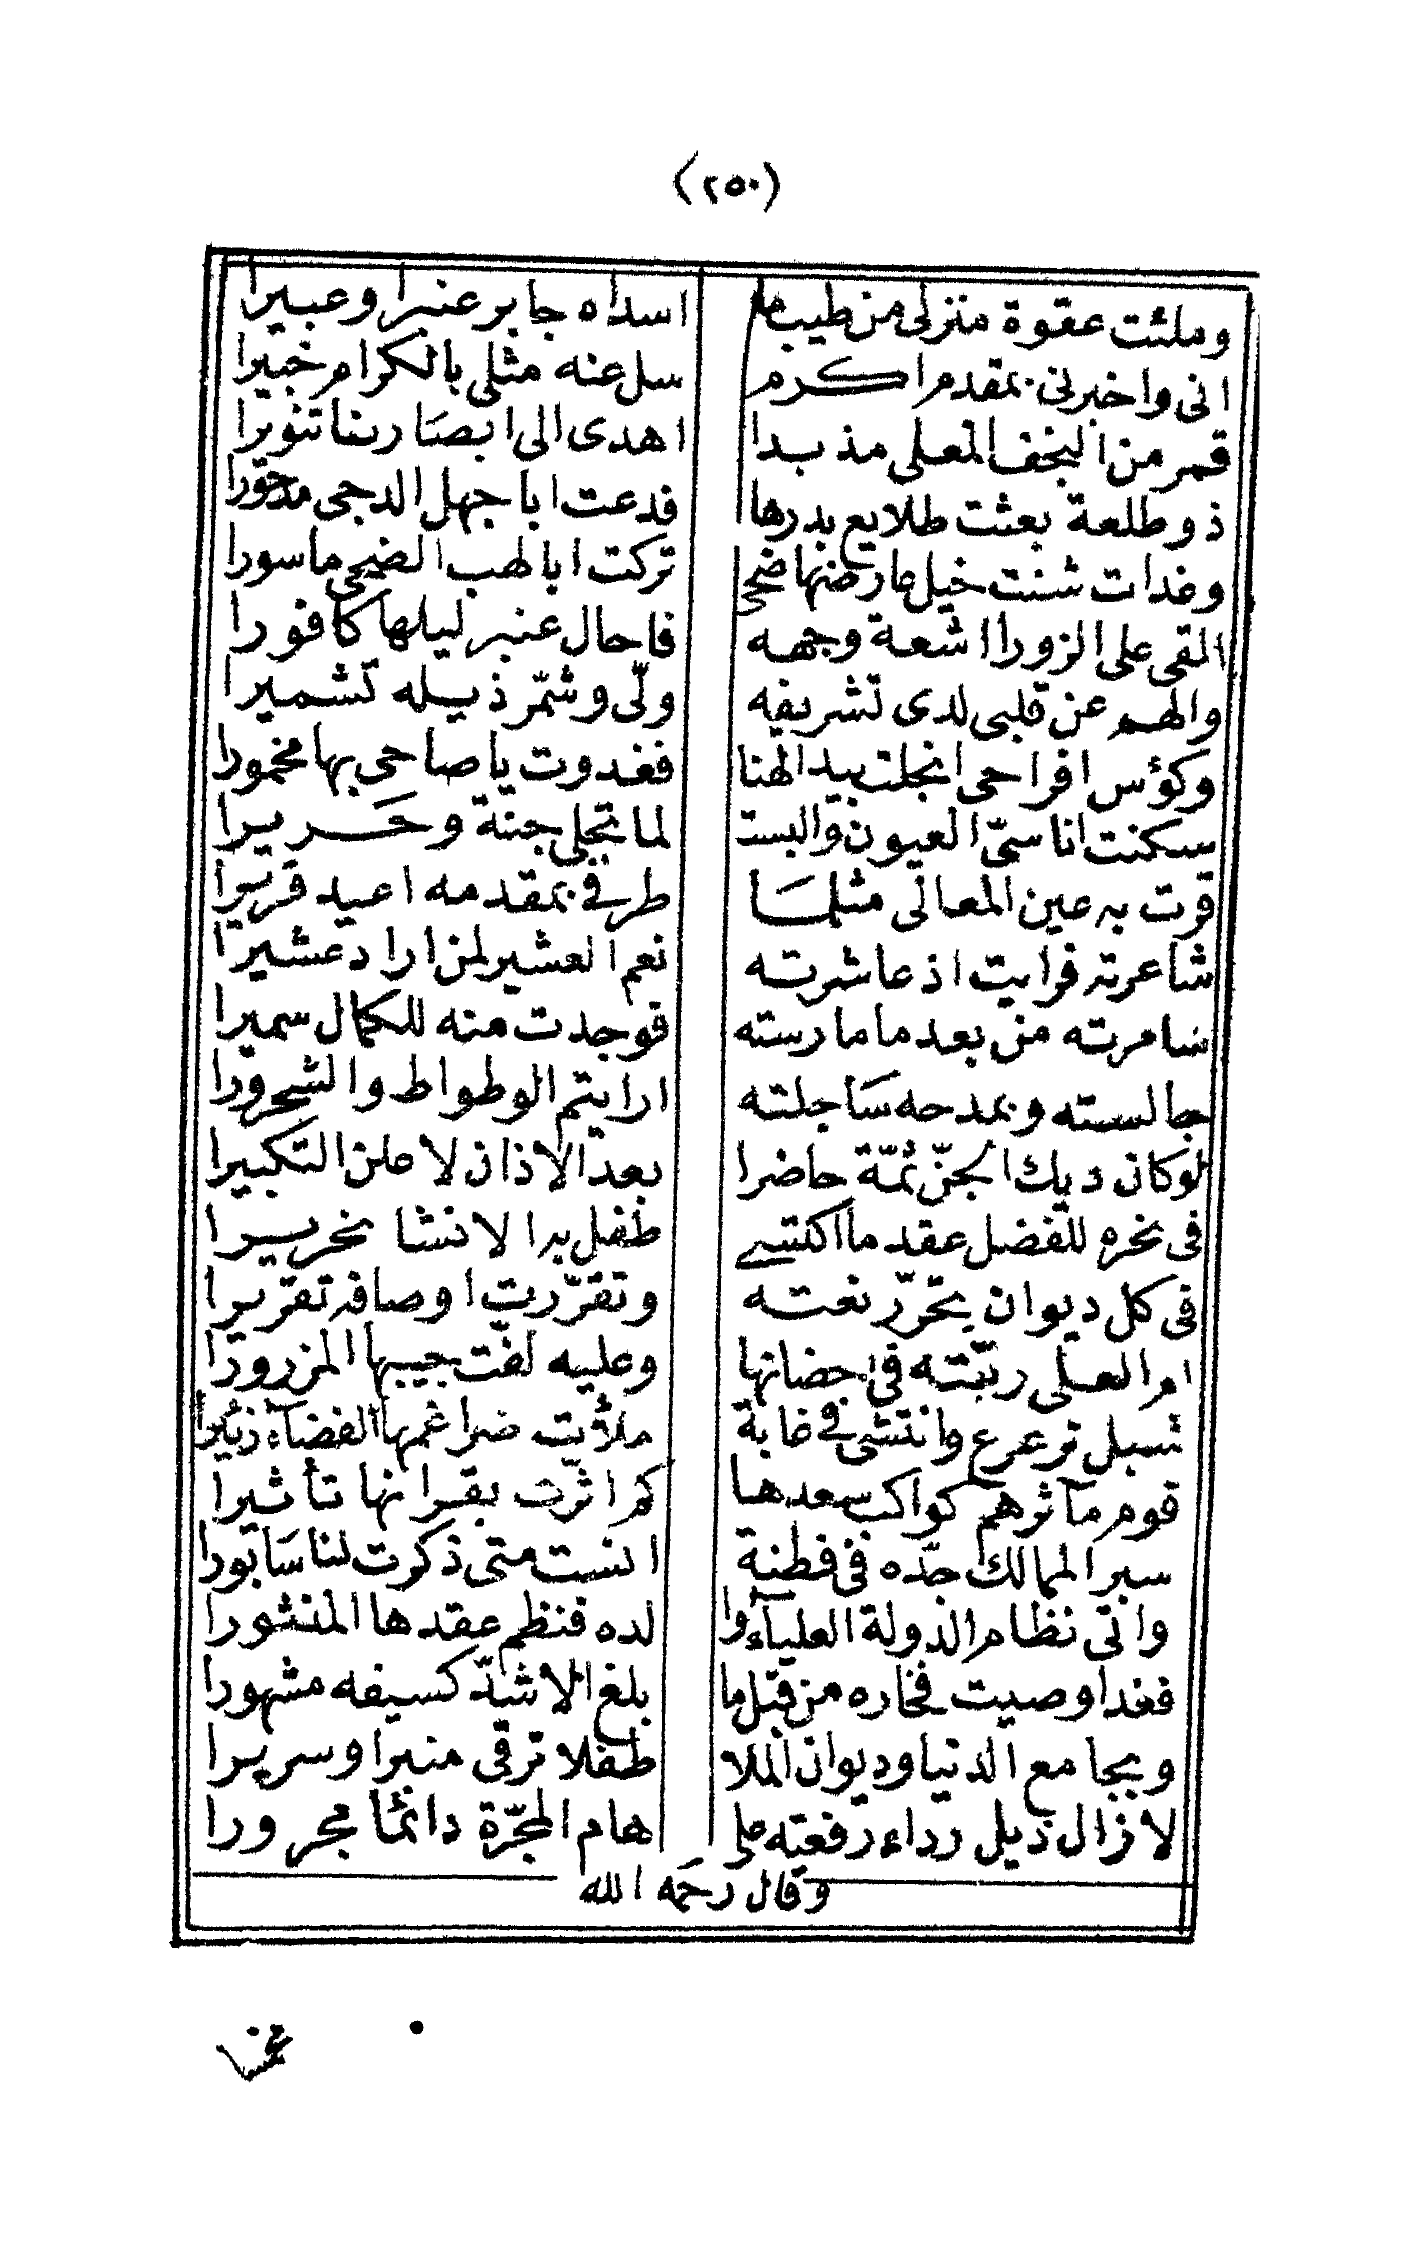 (٢٥٠)
وملئت عقوة منزلى من طيب ما اسداه جابر عنبرا وعبيرا
انى واخبرنى بمقدم اكرم سل عنه مثلى بالكرام خبيرا
قمر من النجف المعلى مذ بدا اهدى الى ابصارنا تنويرا
ذو طلعة بعثت طلايع بدرها فدعت ابا جهل الدجى مدحورا
وغدات شنت خيل عارضها ضحى تركت ابا لهب الضحى ماسورا
القى على الزوراا شعة وجهه فاحال عنبر ليلها كافورا
والهم عن قلبى لدى تشريفه ولّى وشمّر ذيله تشميرا
وكؤس افراحى انجلت بيد الهنا فغدوت يا صاحى بها مخمورا
سكنت اناسىّ العيون والبست لما تجلى جنة وحريرا
قرت به عين المعالى مثلما طرفى بمقدمه اعيد قريرا
شاعرته فرايت اذ عاشرته نعم العشير لمن اراد عشيرا
سامرته من بعد ما مارسته فوجدت منه للكمال سميرا
جالسته وبمدحه ساجلته ارايتم الوطواط والشحرورا
لو كان ديك الجنّ ثمّة حاضرا بعد الاذان لاعلن التكبيرا
فى نحره للفضل عقد ما اكتسى طفل بدا لانشا نحريرا
فى كل ديوان يحرّر نعته وتقرّرت اوصافه تقريرا
ام العلى ربّته فى احضانها وعليه لفّت جيبها المزرورا
شبل ترعرع وانتشى فى غابة ملأت ضراغمها الفضاء زئيرا
قوم مآثرهم كواكب سعدها كم اثّرت بقرانها تأثيرا
سبر الممالك جدّه فى فطنة انست متى ذكرت لنا سابورا
واتى نظام الدولة العلياء وا لده فنظم عقدها المنثورا
فغدا وصيت فخاره من قبل ما بلغ الاشدّ كسيفه مشهورا
وبجامع الدنيا وديوان الملا طفلا ترقى منبرا وسريرا
لا زال ذيل رداء رفعته على هام المجرّة دائمًا مجرورا
وقال رحمه الله